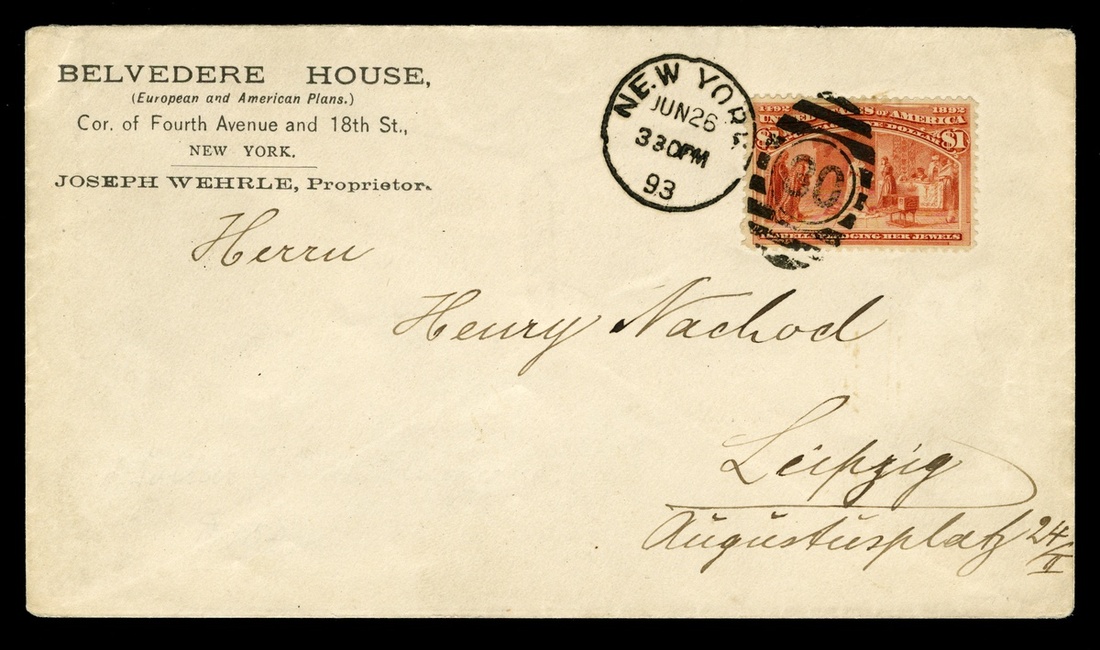 BELVEDERE HOUSE,
(European and American Plans.)
Cor. of Fourth Avenue and 18th St.,
NEW YORK.
JOSEPH WEHRLE, Proprietor.
NEW YORK
JUN 26
330PM
93
1492 1892
UNITED STATES OF AMERICA
DOLLAR
$1
HER JEWELS
Herrn
Henry Nachod
Leipzig
Augustusplatz 24/II